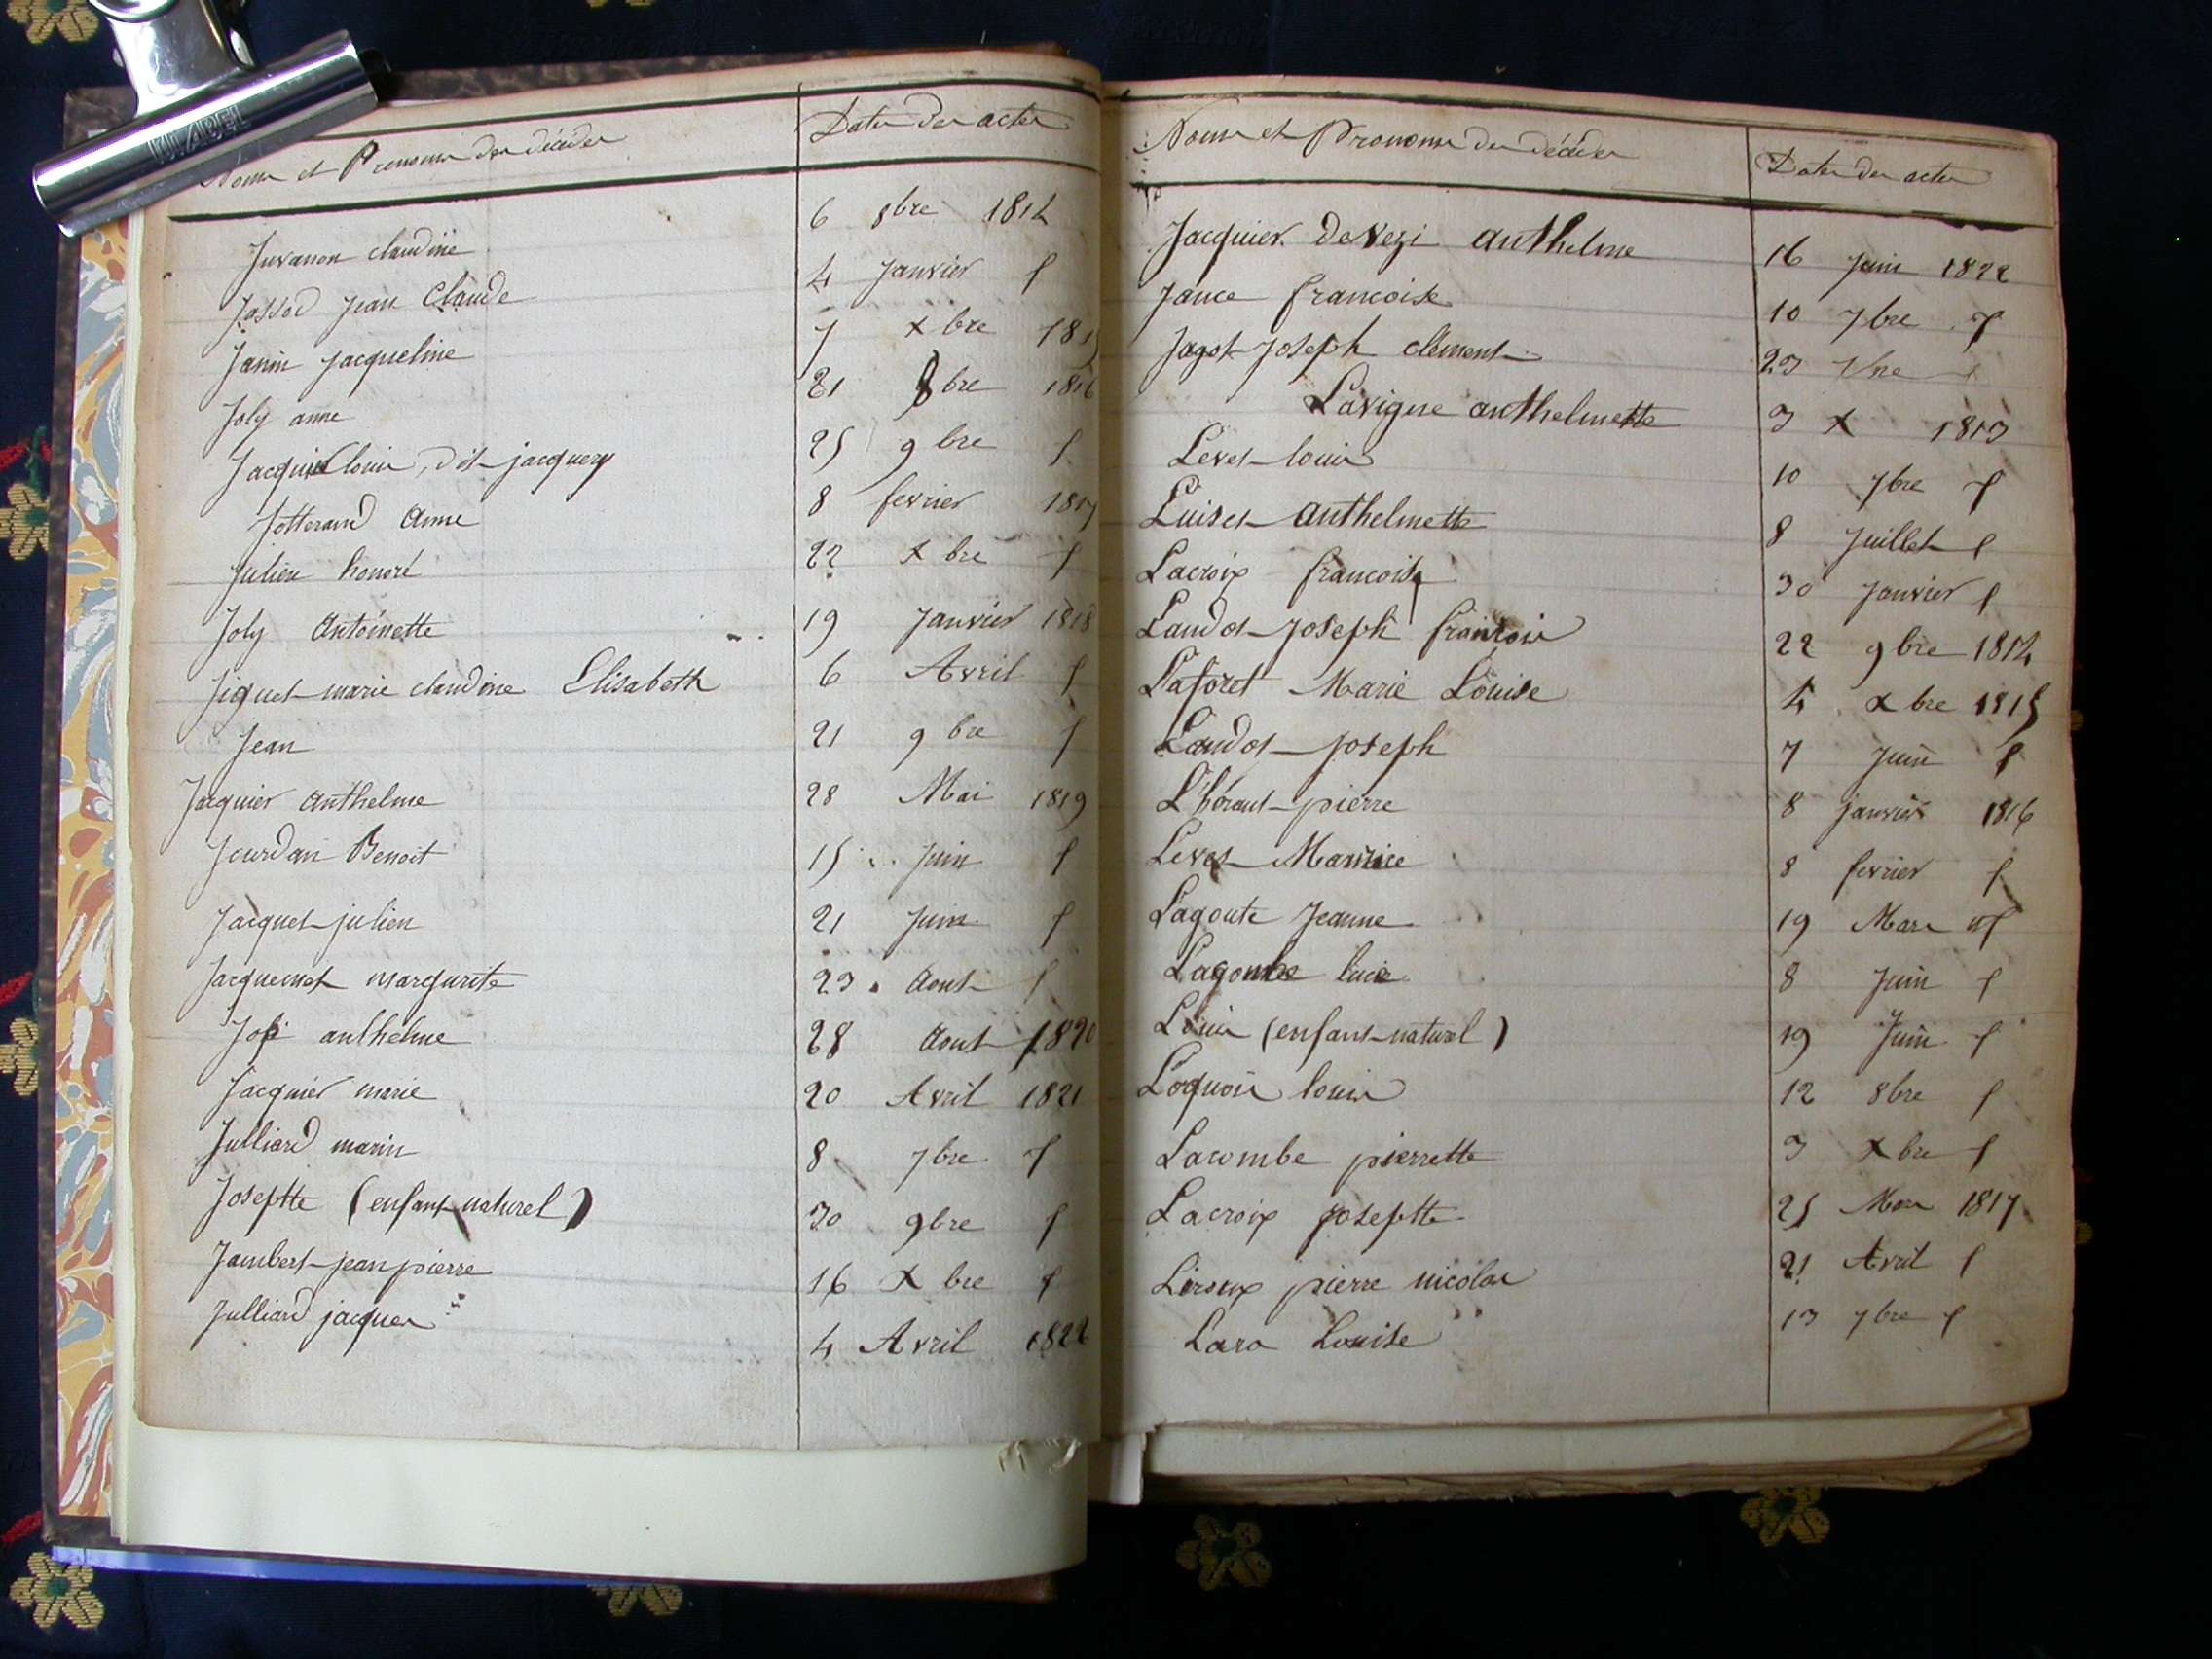 KLABEL
Noms et Prenoms des décédés Dates des actes
Juvanon claudine 6 8bre 1814
Jossod jean Claude 4 Janvier
Janin jacqueline 7 xbre 181
Joly anne 21 8bre 1816
Jacquier louis, dit jacquery 25 9bre
Jotterand Anne 8 fevrier 1817
Julien honoré 22 xbre
Joly Antoinette 19 Janvier 1818
Jiguet marie claudine Elisabeth 6 Avril
Jean 21 9bre
Jacquier Anthelme 28 Mai 1819
Jourdan Benoit 15 Juin
Jacquet julien 21 Juin
Jacquemet margurite 23 Aout
anthelme 28 Aout 1820
Jacquier marie 20 Avril 1821
Julliard marin 8 7bre
Josephte (enfant naturel) 30 9bre
Jambert jean pierre 16 xbre
Julliard jacques 4 Avril 1822
Noms et Prenoms des décédés Dates des actes
Jacquier devezi Anthelme 16 Juin 1822
Jance francoise 10 7bre
Jagot Joseph clément 23
Lavigne anthelmette 3 x 1813
Levet louis 10 7bre
Luiset Anthelmette 8 Juillet
Lacroix francoise 30 Janvier
Landot Joseph francois 22 9bre 1814
Laforet Marie Louise 4 xbre 1815
Landot Joseph 7 Juin
L'héraut pierre 8 janvier 1816
Levet Maurice 8 fevrier
Lagoute Jeanne 19 Mars
Lagombe lucie 8 Juin
Louis (enfant naturel) 19 Juin
Loquois louis 12 8bre
Lacombe pierrette 3 xbre
Lacroix Josephte 25 Mars 1817
Liroux pierre nicolas 21 Avril
Lara Louise 13 7bre